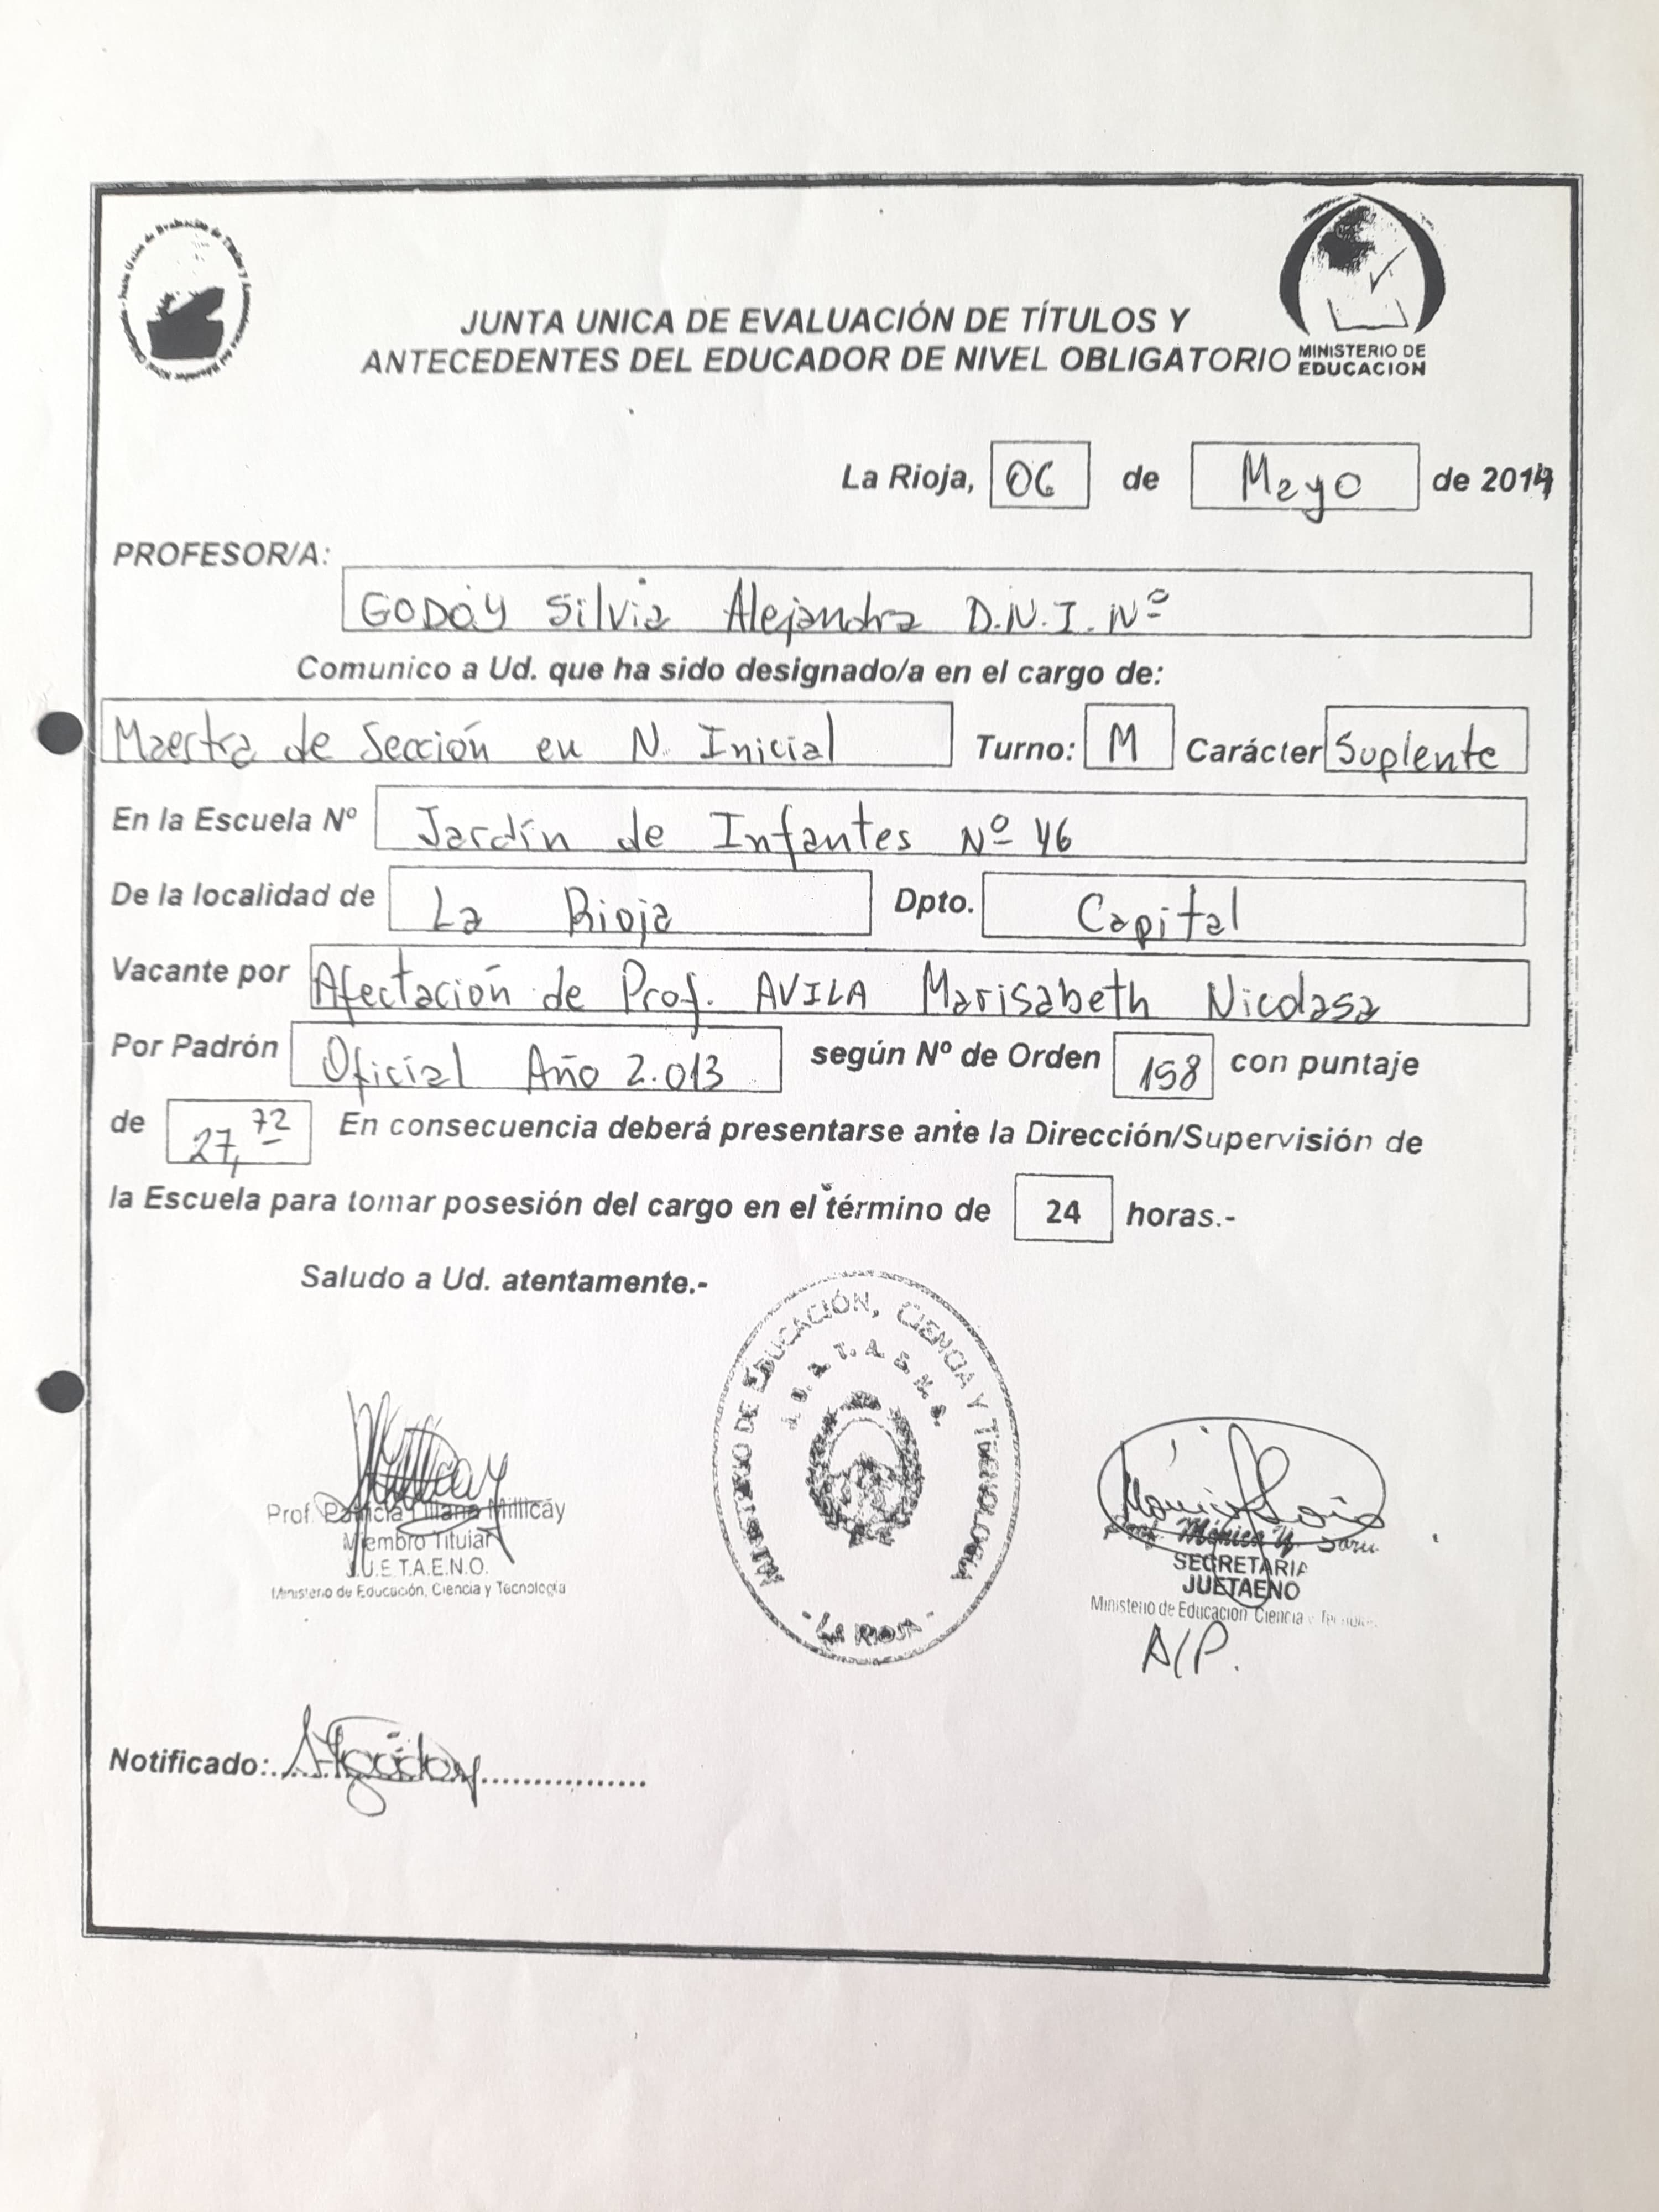 Junta Unica de Evaluación de Títulos y Antecedentes del Educador Nivel Obligatorio
JUNTA UNICA DE EVALUACIÓN DE TÍTULOS Y
ANTECEDENTES DEL EDUCADOR DE NIVEL OBLIGATORIO
MINISTERIO DE
EDUCACION
La Rioja, 06 de Mayo de 2014
PROFESOR/A:
GODOY Silvia Alejandra D.N.I. Nº
Comunico a Ud. que ha sido designado/a en el cargo de:
Maestra de Sección en N. Inicial Turno: M Carácter Suplente
En la Escuela Nº Jardín de Infantes Nº 46
De la localidad de La Rioja Dpto. Capital
Vacante por Afectación de Prof. AVILA Marisabeth Nicolasa
Por Padrón Oficial Año 2.013 según Nº de Orden 158 con puntaje
de 27,72 En consecuencia deberá presentarse ante la Dirección/Supervisión de
la Escuela para tomar posesión del cargo en el término de 24 horas.-
Saludo a Ud. atentamente.-
MINISTERIO DE EDUCACIÓN, CIENCIA Y TECNOLOGÍA
J.U.E.T.A.E.N.O.
- LA RIOJA -
Prof. Patricia Liliana Millicay
Miembro Titular
J.U.E.T.A.E.N.O.
Ministerio de Educación, Ciencia y Tecnología
Mónica
SECRETARIA
JUETAENO
Ministerio de Educación Ciencia y Tecnología
A/P.
Notificado: SAGodoy